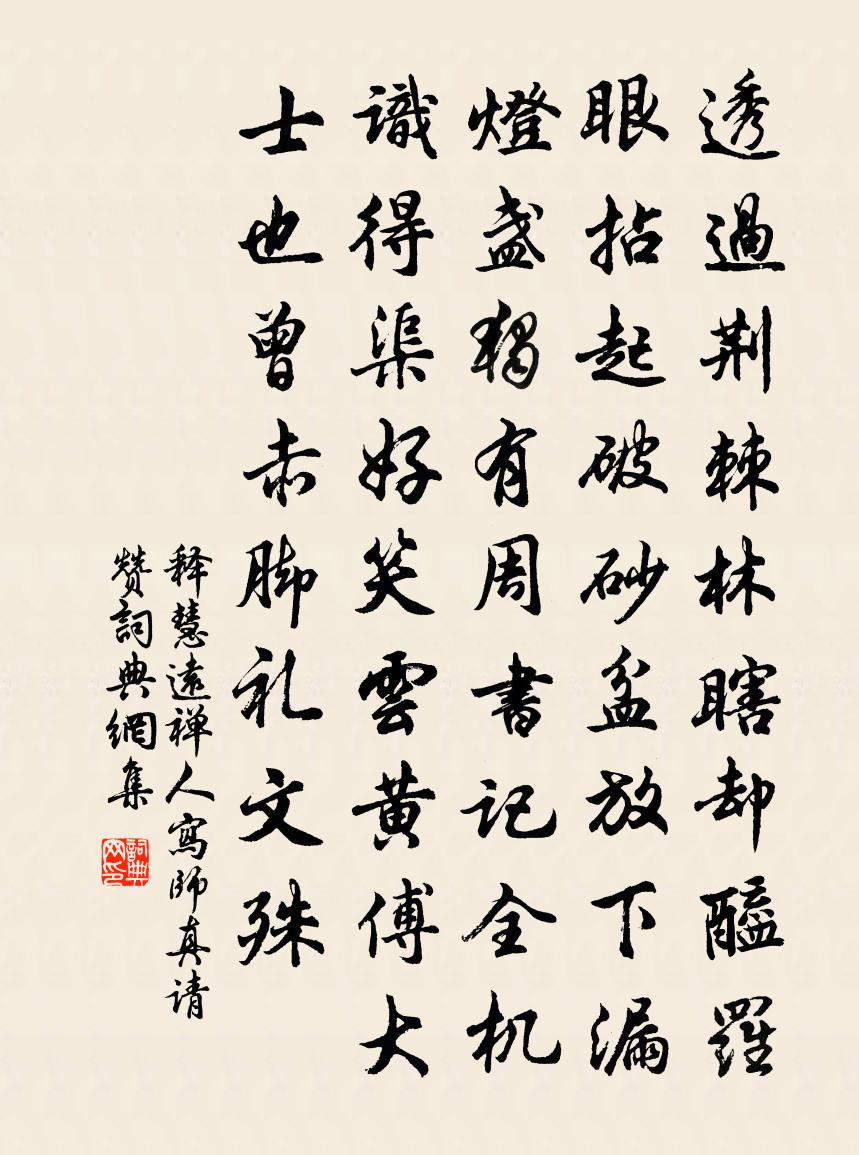 透過荆棘林瞎却醯羅
眼拈起破砂盆放下漏
燈盞獨有周書记全机
識得渠好笑雲黄傅大
士也曾赤脚礼文殊
释慧遠禅人寫師真请
赞詞典網集
詞典
网印